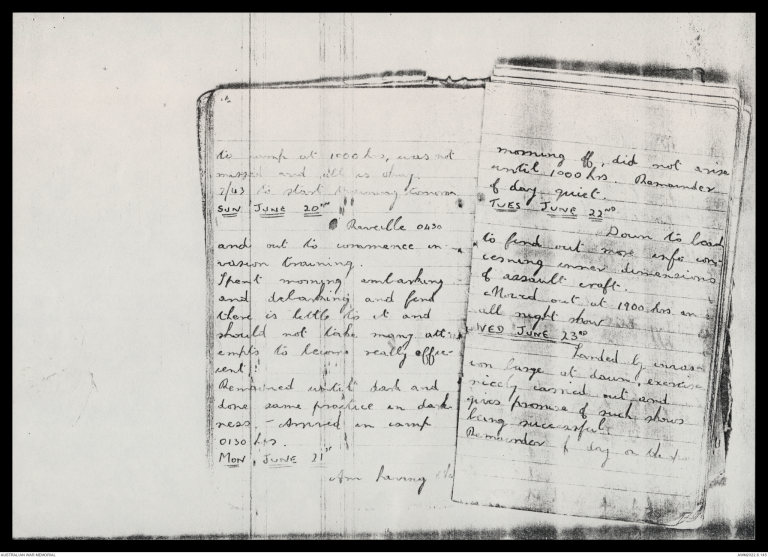 to camp at 1000 hrs, was not
missed and all is okay.
2/43 to start training tomorrow
SUN JUNE 20TH
Raveille 0430
and out to commence in-
vasion training.
Spent morning embarking
and debarking and find
there is little to it and
should not take many att-
empts to become really effic-
ient!
Remained until dark and
done same practice in dark-
ness. - Arrived in camp
0130 hrs.
MON. JUNE 21ST
Am having
morning off, did not arise
until 1000 hrs. Remainder
of day quiet.
TUES JUNE 22ND
Down to load
to find out more info con-
cerning inner dimensions
of assault craft.
Moved out at 1900 hrs on
all night show
WED JUNE 23RD
Landed by invas-
ion barge at dawn, exercise
nicely carried out and
gives promise of such shows
being successful.
Remainder of day on the
AUSTRALIAN WAR MEMORIAL